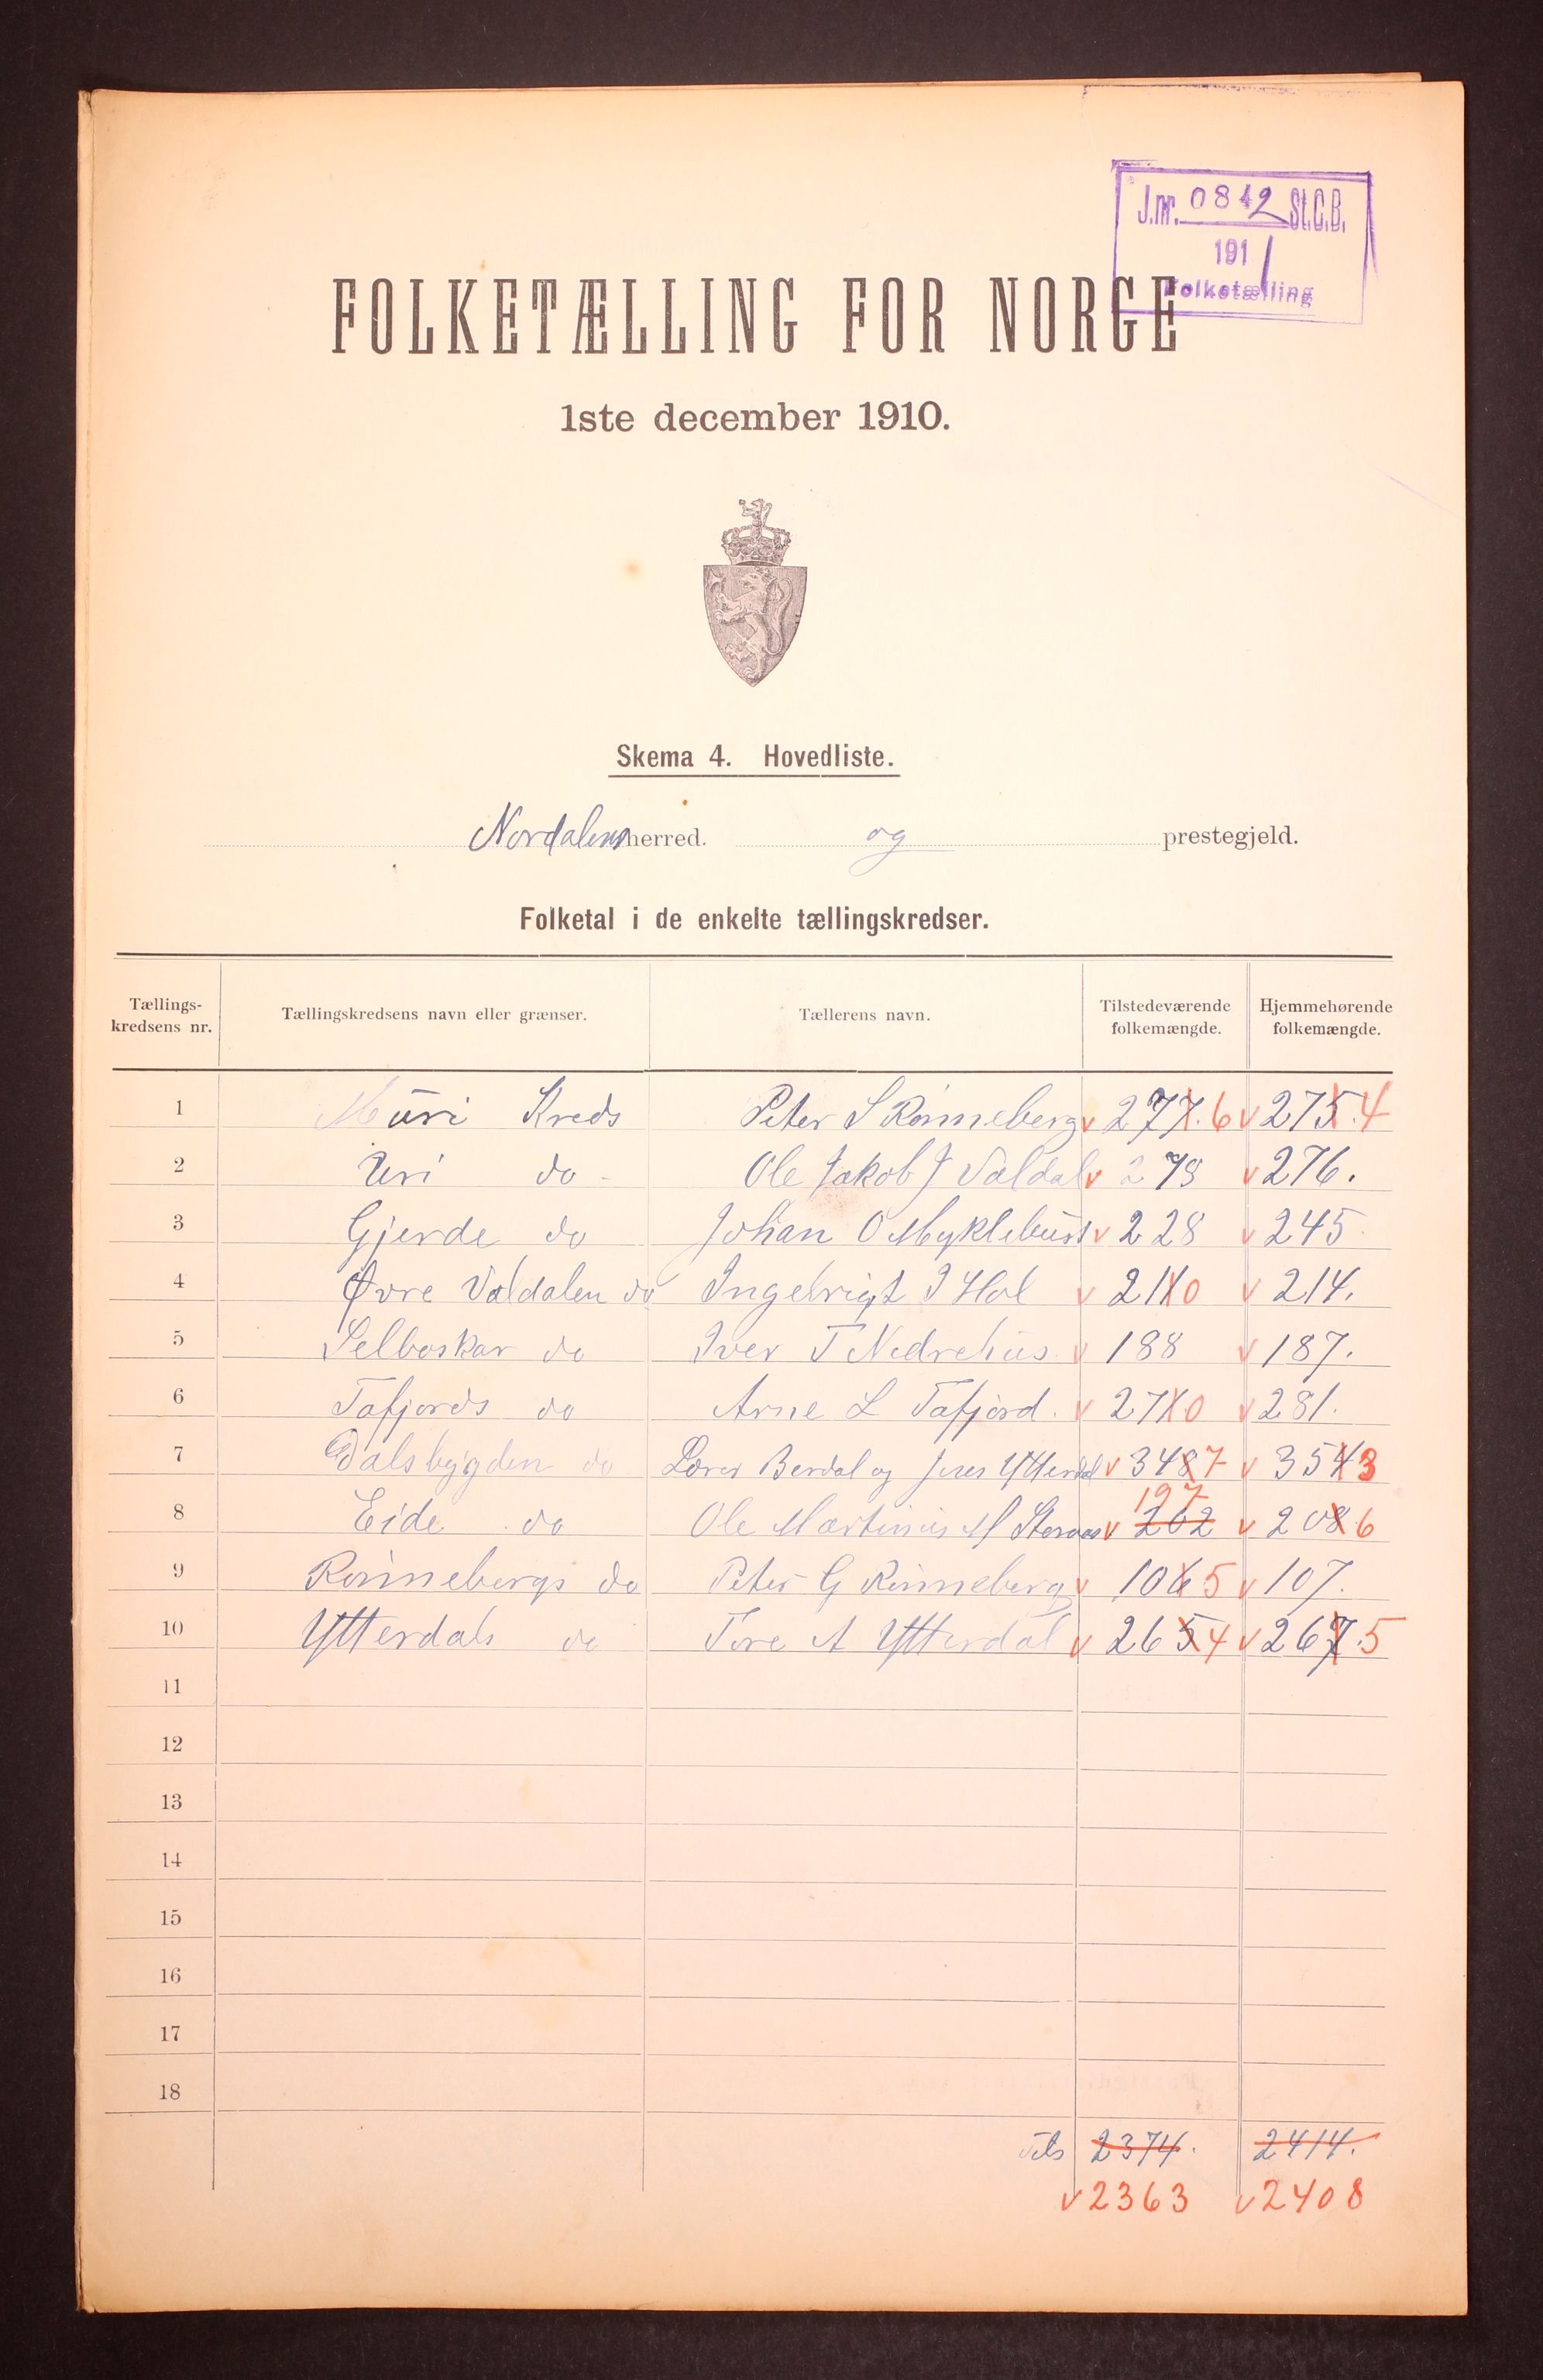 J.nr. 0842 St.C.B.
1911
Folketælling
FOLKETÆLLING FOR NORGE
1ste december 1910.
Skema 4. Hovedliste.
Nordalens herred. og prestegjeld.
Folketal i de enkelte tællingskredser.
Tællings-kredsens nr. Tællingskredsens navn eller grænser. Tællerens navn. Tilstedeværende folkemængde. Hjemmehørende folkemængde.
1 Muri Kreds Peter S Rønneberg v 277. 6 v 275. 4
2 Uri do - Ole Jakob J Valdal v 278 v 276.
3 Gjerde do Johan O Myklebust v 228 v 245
4 Øvre Valdalen do Ingebrigt I Hol v 211 0 v 214.
5 Selboskar do Iver T Nedrehus v 188 v 187.
6 Tafjords do Arne L Tafjord. v 271 0 v 281.
7 Dalsbygden do Berdal og Ytterdal v 348 7 v 354 3
8 Eide do Ole Martinus M v 202 197 v 208 6
9 Rønnebergs do Peter G Rønneberg v 106 5 v 107.
10 Ytterdals do Tore A Ytterdal v 265 4 v 267. 5
11
12
13
14
15
16
17
18
2374. 2414.
v 2363 v 2408